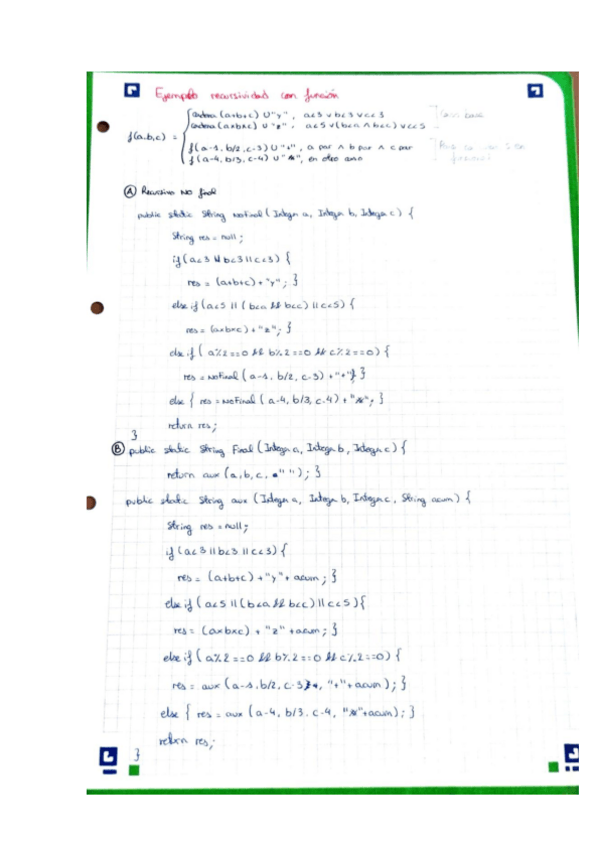 Ejemplo recursividad con función
cadena (a+b+c) U "y", a<3 v b<3 v c<3 Caso base
cadena (axbxc) U "z", a<5 v (b<a ∧ b<c) v c<5
f(a,b,c) =
f(a-1, b/2, c-3) U "+", a par ∧ b par ∧ c par
f(a-4, b/3, c-4) U "*", en otro caso
Ⓐ Recursivo No final
public static String NoFinal (Integer a, Integer b, Integer c) {
String res = null;
if (a<3 || b<3 || c<3) {
res = (a+b+c) + "y"; }
else if (a<5 || (b<a && b<c) || c<5) {
res = (axbxc) + "z"; }
else if ( a%2==0 && b%2==0 && c%2==0) {
res = NoFinal (a-1, b/2, c-3) + "+"; }
else { res = NoFinal (a-4, b/3, c-4) + "*"; }
return res;
}
Ⓑ public static String Final (Integer a, Integer b, Integer c) {
return aux (a, b, c, " "); }
public static String aux (Integer a, Integer b, Integer c, String acum) {
String res = null;
if (a<3 || b<3 || c<3) {
res = (a+b+c) + "y" + acum; }
else if (a<5 || (b<a && b<c) || c<5) {
res = (axbxc) + "z" + acum; }
else if (a%2==0 && b%2==0 && c%2==0) {
res = aux (a-1, b/2, c-3, "+" + acum); }
else { res = aux (a-4, b/3, c-4, "*" + acum); }
return res;
}